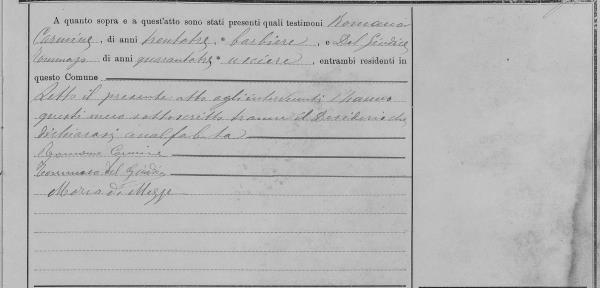 A quanto sopra e a quest'atto sono stati presenti quali testimoni Romano
Carmine, di anni trentatre, barbiere, e Del Giudice
Tommaso di anni quarantatre, usciere, entrambi residenti in
questo Comune
Letto il presente atto agli intervenuti l'hanno
questi meco sottoscritto tranne il Desiderio che
dichiarasi analfabeta
Romano Carmine
Tommaso del Giudice